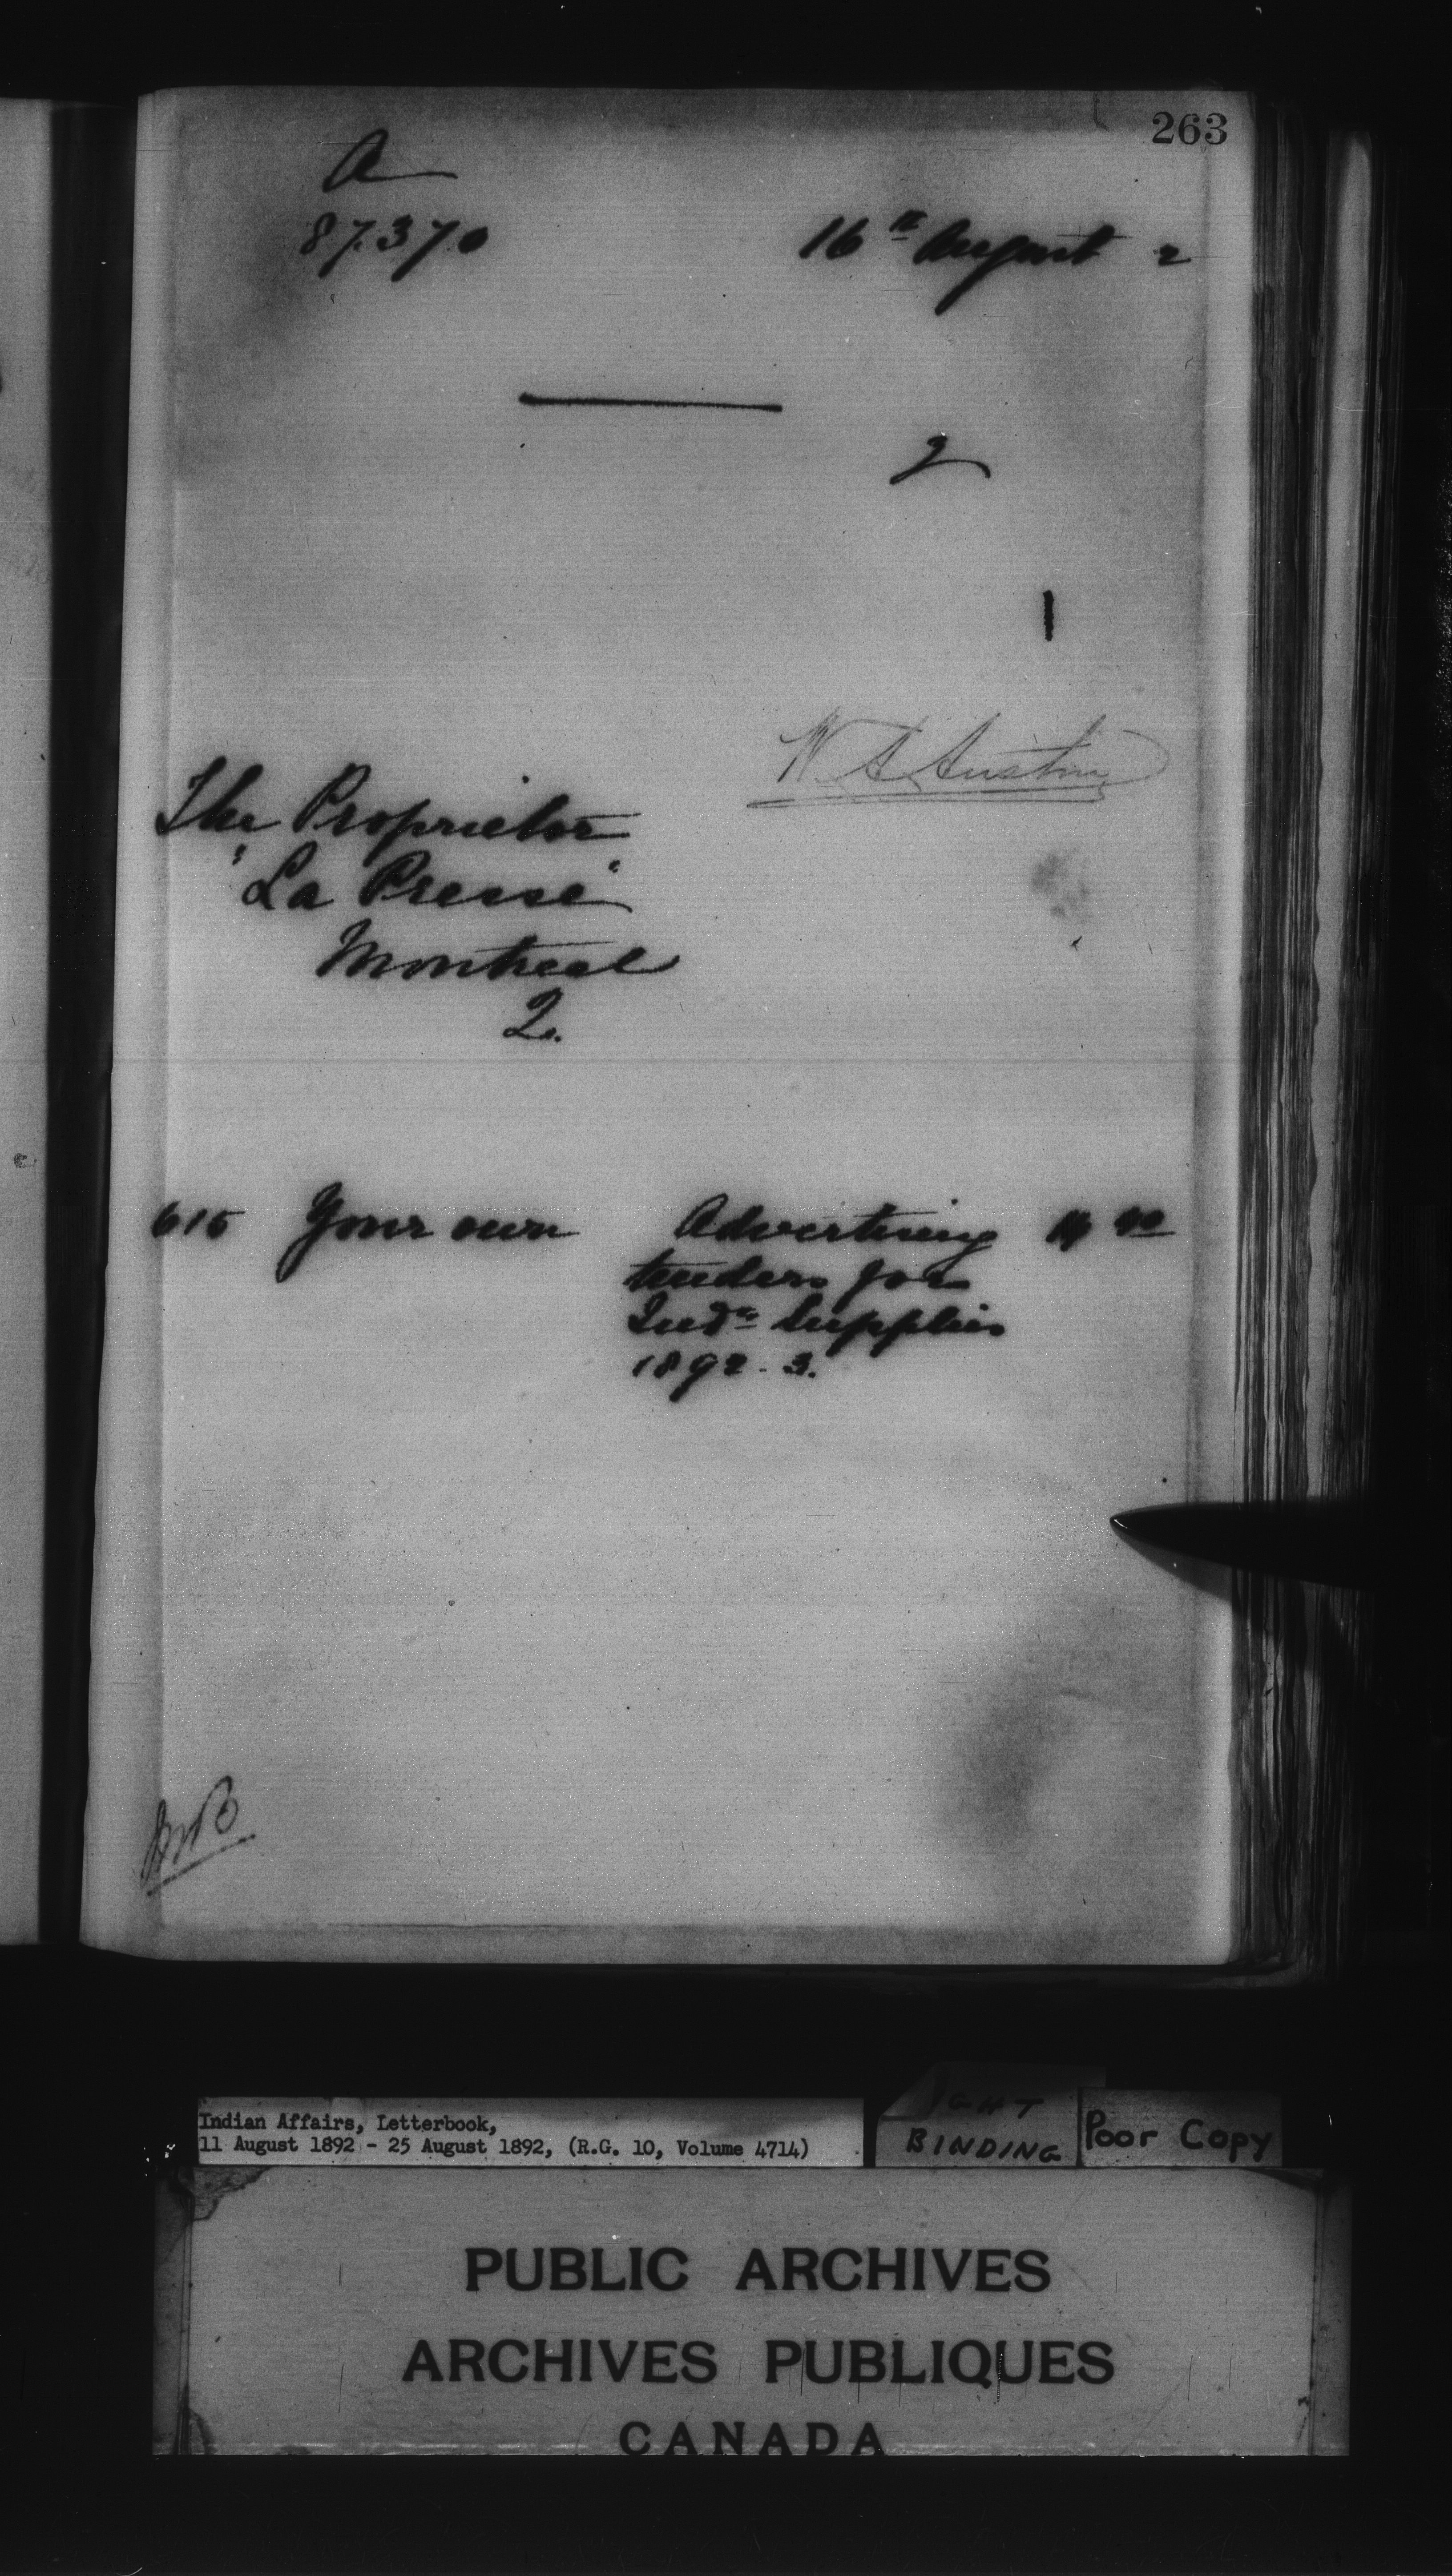 263
A
87.370
16th August 2
2
1
W A Austin
The Proprietor
"La Presse"
Montreal
Q.
615 Your own Advertising
tenders for
Indn Supplies
1892-3.
Indian Affairs, Letterbook,
11 August 1892 - 25 August 1892, (R.G. 10, Volume 4714)
BINDING
Poor Copy
PUBLIC ARCHIVES
ARCHIVES PUBLIQUES
CANADA